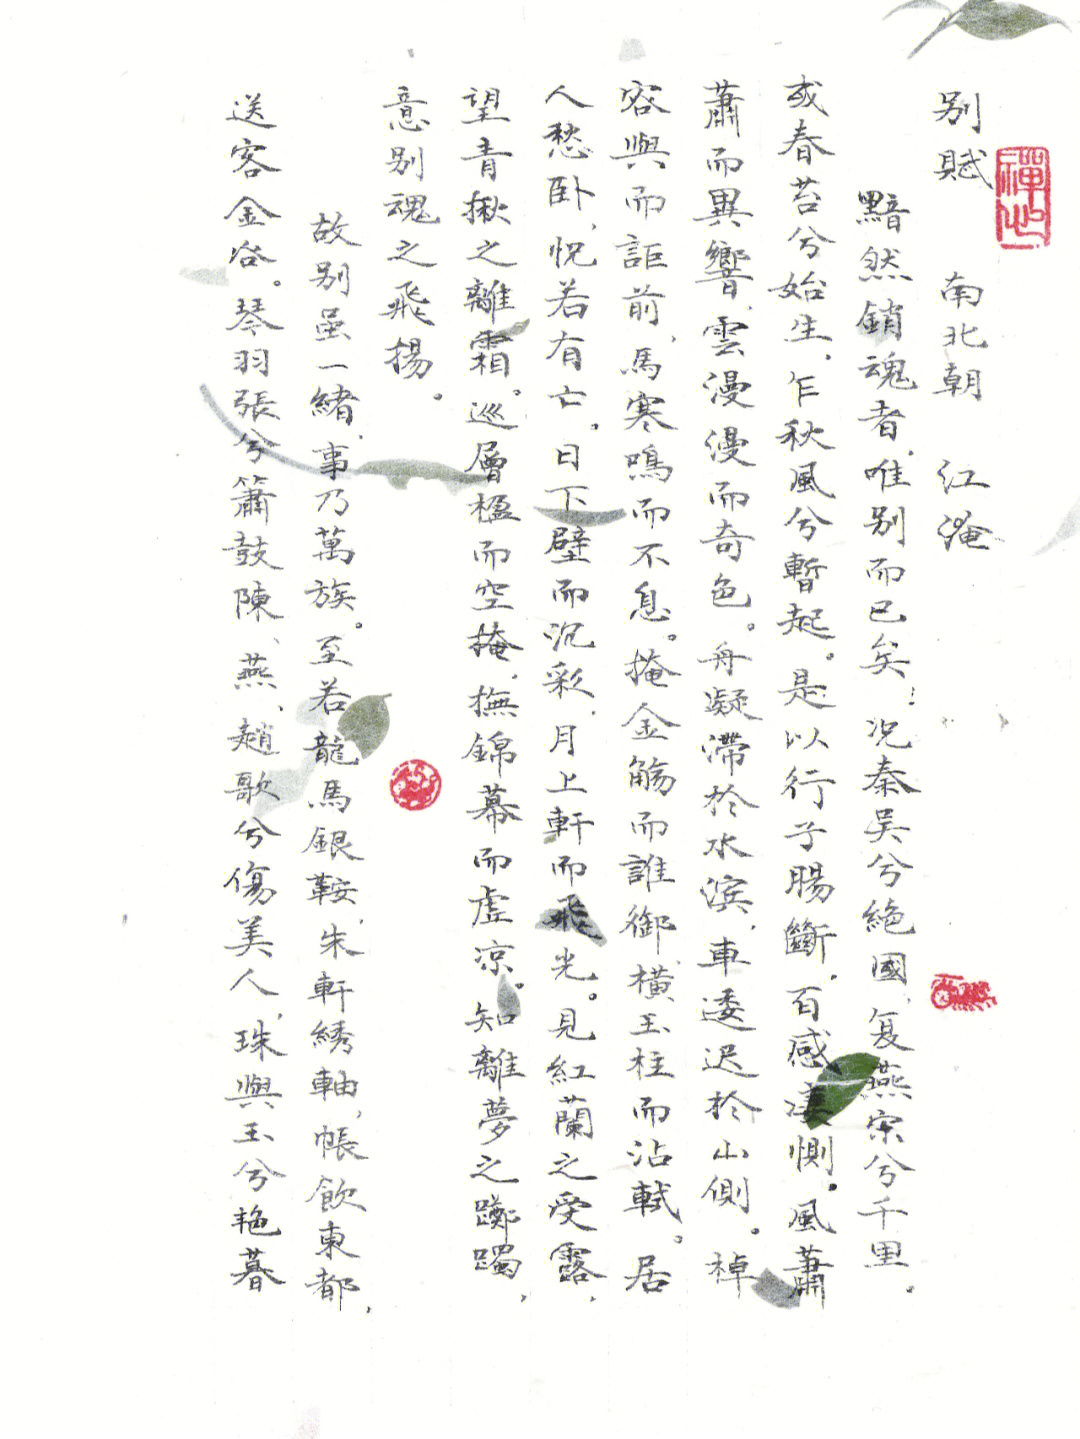 别賦 南北朝 江淹
禪心
黯然銷魂者，唯别而已矣；况秦吴兮絶國，复燕宋兮千里。
或春苔兮始生，乍秋風兮暫起。是以行子腸斷，百感淒惻。風蕭
蕭而異響，雲漫漫而奇色。舟凝滯於水滨，車逶迟於山側。棹
容與而詎前，馬寒鳴而不息。掩金觴而誰御，横玉柱而沾軾。居
人愁卧，怳若有亡。日下壁而沉彩，月上軒而飛光。見紅蘭之受露，
望青楸之離霜。巡層楹而空掩，撫錦幕而虚凉。知離夢之躑躅，
意别魂之飛揚。
故别虽一緒，事乃萬族。至若龍馬銀鞍，朱軒綉軸，帳飲東都，
送客金谷。琴羽張兮簫鼓陳，燕、趙歌兮傷美人，珠與玉兮艳暮